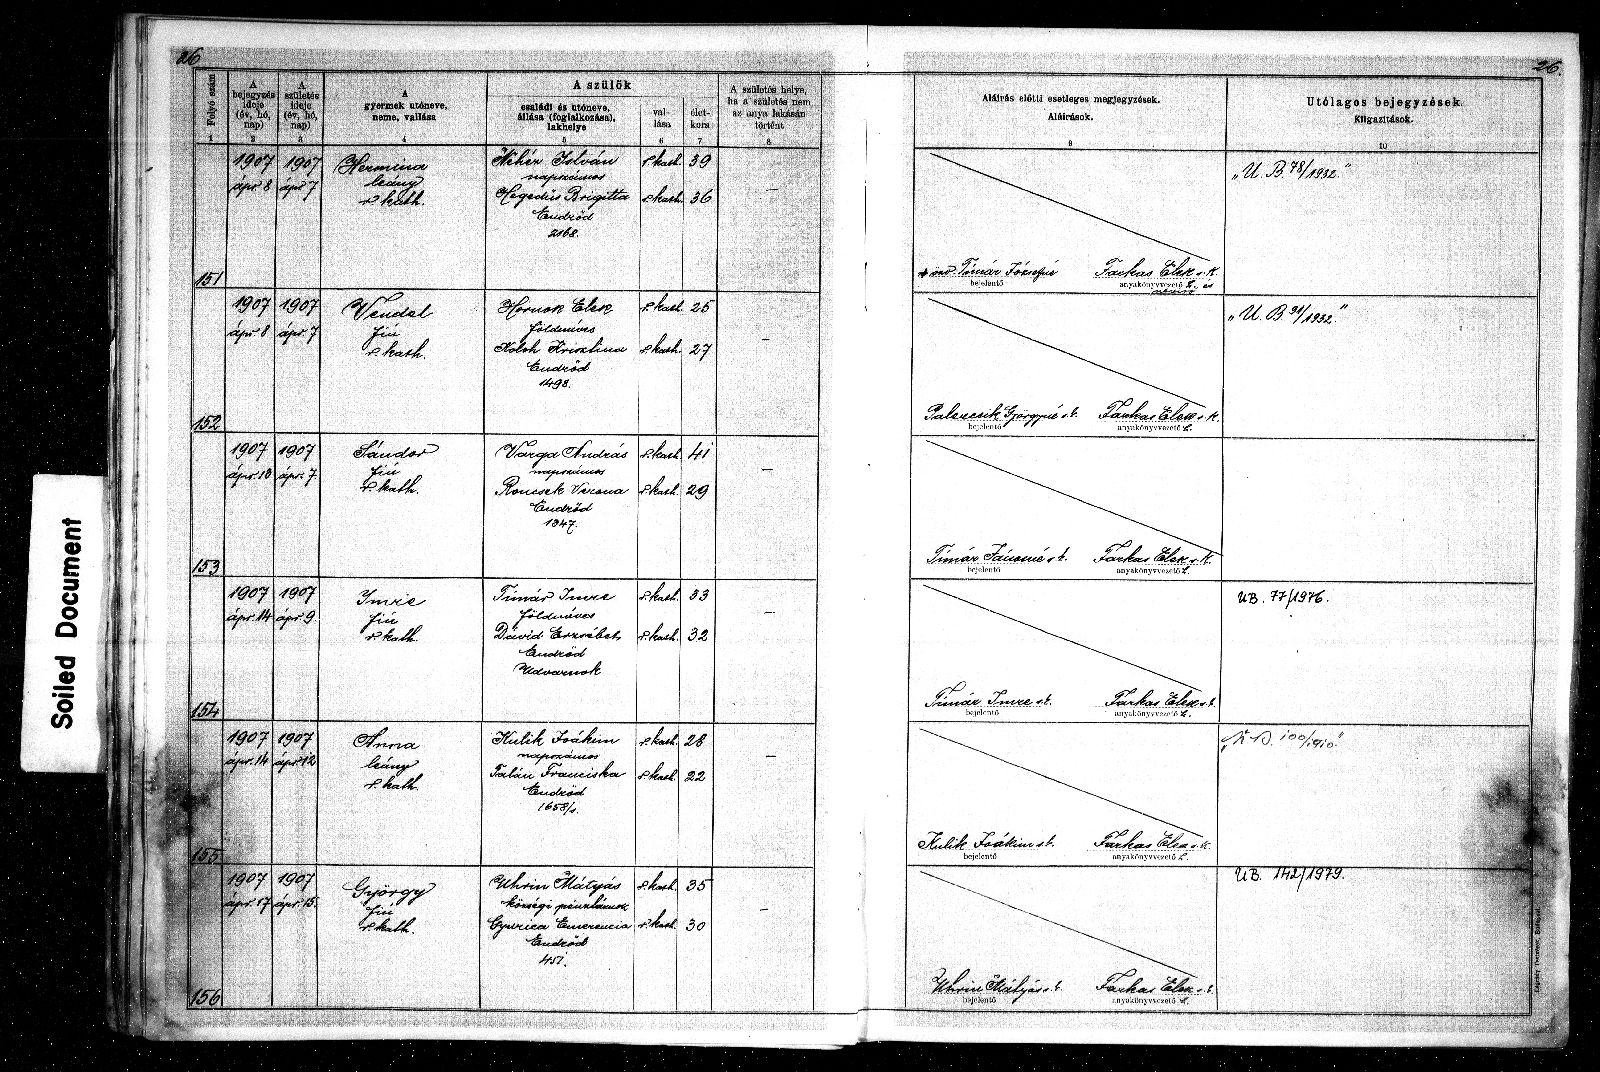 26
26.
Folyó szám
A bejegyzés ideje (év, hó, nap)
A születés ideje (év, hó, nap)
A gyermek utóneve, neme, vallása
A szülők
családi és utóneve, állása (foglalkozása), lakhelye
vallása
életkora
A születés helye, ha a születés nem az anya lakásán történt
Aláírás előtti esetleges megjegyzések.
Aláírások.
Utólagos bejegyzések.
Kiigazítások.
1 2 3 4 5 6 7 8 9 10
1907 1907 Hermina Kéhéz István r. kath. 39
ápr. 8 ápr. 7 leány napszámos
r. kath. Hegedűs Brigitta r. kath. 36 —
Endrőd
2168.
„U. B. 78/1932."
151
Tímár Józsefné Farkas Elek s. k.
bejelentő anyakönyvvezető h.
1907 1907 Vendel Hornok Elek r. kath. 25
ápr. 8 ápr. 7 fiú földmíves
r. kath. Koloh Krisztina r. kath. 27 —
Endrőd
1498.
„U. B. 91/1932."
152
Palercsik Györgyné s. t. Farkas Elek s. k.
bejelentő anyakönyvvezető h.
1907 1907 Sándor Varga András r. kath. 41
ápr. 13 ápr. 7. fiú napszámos
r. kath. Roncsek Verona r. kath. 29 —
Endrőd
1347.
153
Tímár Jánosné s. t. Farkas Elek s. k.
bejelentő anyakönyvvezető h.
1907 1907 Imre Tímár Imre r. kath. 33
ápr. 14 ápr. 9. fiú földmíves
r. kath. Dávid Erzsébet r. kath. 32 —
Endrőd
Udvarnok
UB. 77/1976.
154
Tímár Imre s. t. Farkas Elek s. t.
bejelentő anyakönyvvezető h.
1907 1907 Anna Kulik Joákim r. kath. 28
ápr. 14 ápr. 12 leány napszámos
r. kath. Talán Franciska r. kath. 22 —
Endrőd
1658/1.
100/1910"
155
Kulik Joákim s. t. Farkas Elek s. k.
bejelentő anyakönyvvezető h.
1907 1907 György Uhrin Mátyás r. kath. 35
ápr. 17 ápr. 15. fiú községi pénztárnok
r. kath. Gyurica Emerencia r. kath. 30 —
Endrőd
451.
UB. 142/1979.
156
Uhrin Mátyás s. t. Farkas Elek s. t.
bejelentő anyakönyvvezető h.
Soiled Document